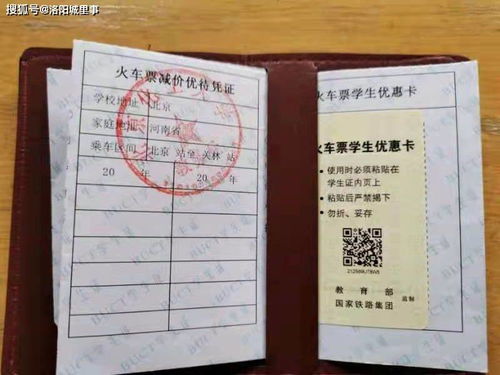 搜狐号@洛阳城里事
火车票减价优待凭证
学校地址 北京
家庭地址 河南省
乘车区间 北京 站至 关林 站
20 年 20 年
火车票学生优惠卡
火车票学生优惠卡
• 使用时必须粘贴在
学生证内页上
• 粘贴后严禁揭下
• 勿折、妥存
教育部
国家铁路集团 监制
BUCT学生证